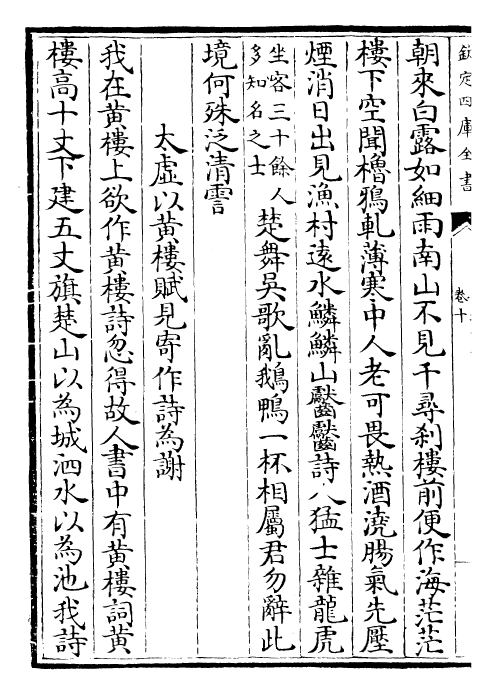 欽定四庫全書
卷十
朝來白露如細雨南山不見千尋刹樓前便作海茫茫
樓下空聞櫓鴉軋薄寒中人老可畏熱酒澆腸氣先壓
煙消日出見漁村遠水鱗鱗山齾齾詩人猛士雜龍虎
坐客三十餘人
多知名之士
楚舞吳歌亂鵝鴨一杯相屬君勿辭此
境何殊泛清霅
太虛以黃樓賦見寄作詩為謝
我在黃樓上欲作黃樓詩忽得故人書中有黃樓詞黃
樓高十丈下建五丈旗楚山以為城泗水以為池我詩